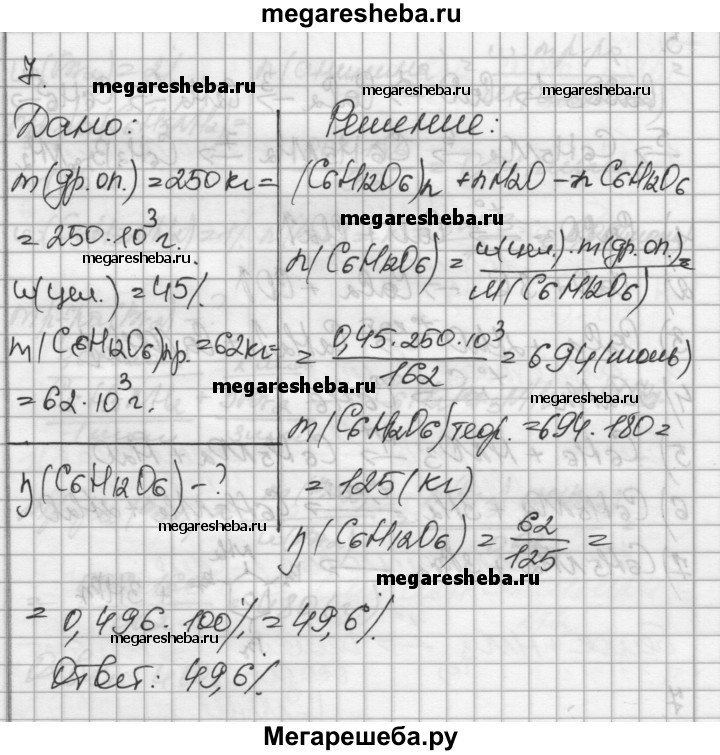 megaresheba.ru
7.
megaresheba.ru megaresheba.ru
Дано:
m(др.оп.) = 250 кг =
= 250·10³ г.
megaresheba.ru
ω(цел.) = 45%
m(C6H12O6)пр. = 62кг =
= 62·10³ г.
η(C6H12O6) - ?
megaresheba.ru
Решение:
(C6H12O6)n + nH2O → n C6H12O6
megaresheba.ru
n(C6H12O6) = ω(цел.)·m(др.оп.) / M(C6H12O6) =
= 0,45·250·10³ / 162 = 694 (моль)
megaresheba.ru megaresheba.ru
m(C6H12O6)теор. = 694·180 =
= 125 (кг)
η(C6H12O6) = 62 / 125 =
megaresheba.ru
= 0,496·100% = 49,6%.
megaresheba.ru
Ответ: 49,6%.
megaresheba.ru
Мегарешеба.ру